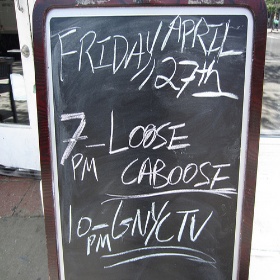 FRIDAY, APRIL
27th
7- LOOSE
PM CABOOSE
10- GNYCTV
PM